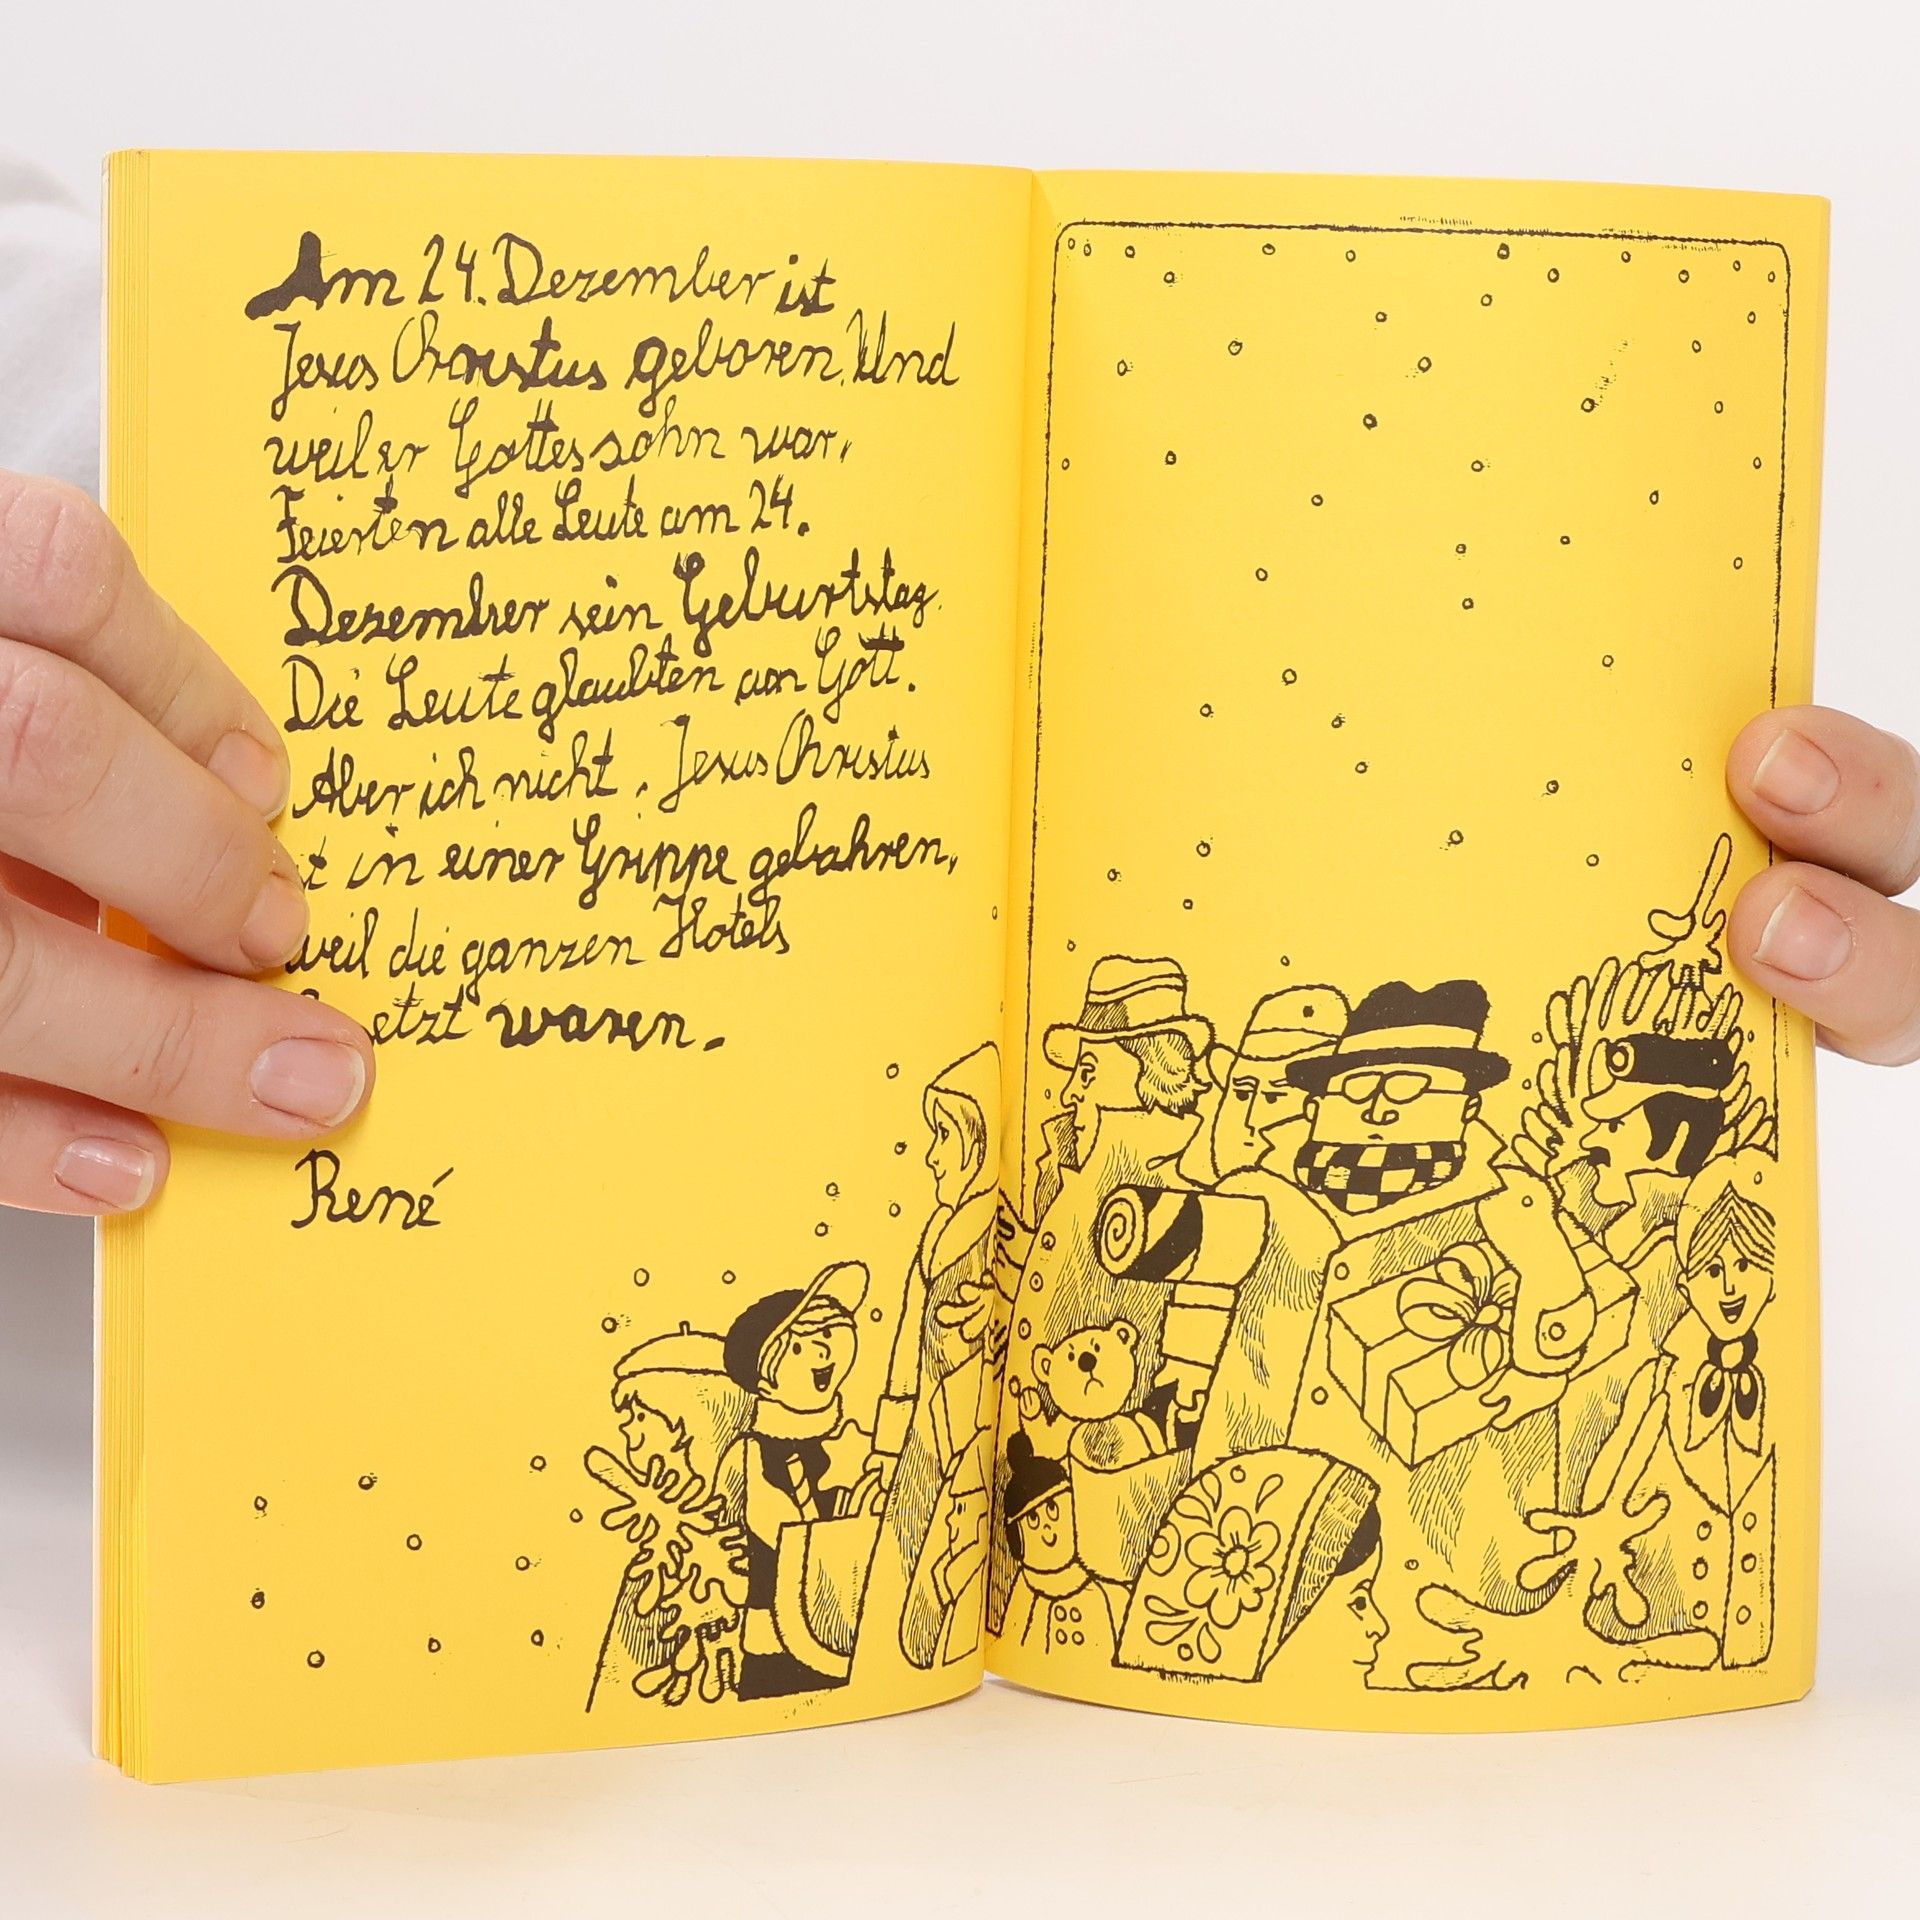 Am 24. Dezember ist
Jesus Christus geboren. Und
weil er Gottes sohn war,
Feierten alle Leute am 24.
Dezember sein Geburtstag.
Die Leute glaubten an Gott.
Aber ich nicht. Jesus Christus
t in einer Grippe gebahren,
weil die ganzen Hotels
etzt waren.
René